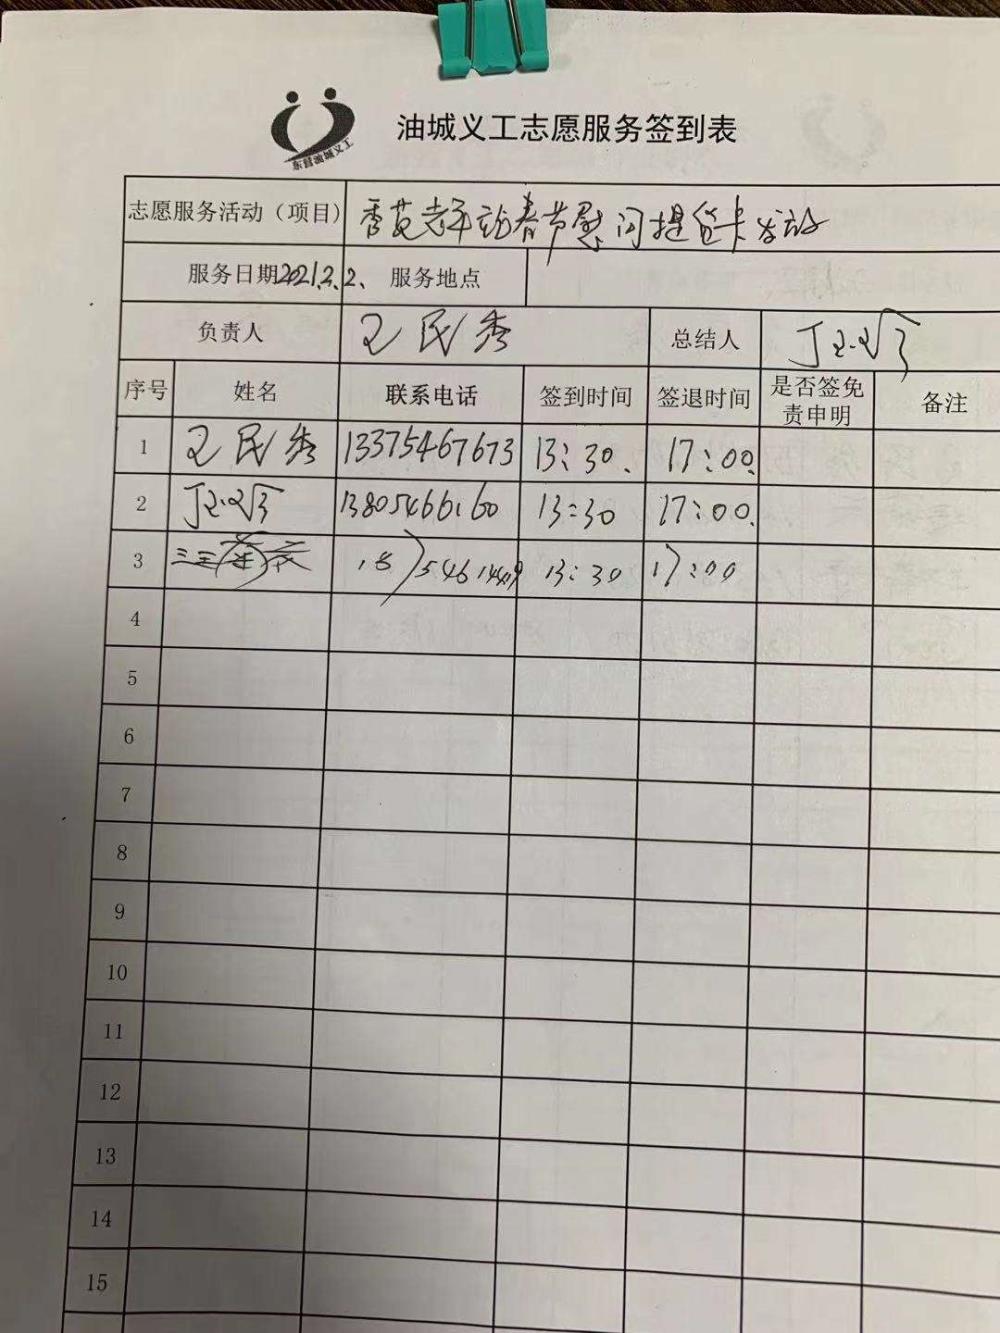 东营油城义工
油城义工志愿服务签到表
志愿服务活动（项目） 春节慰问提货卡发放
服务日期 2021.2.2、 服务地点
负责人 王民秀 总结人
序号 姓名 联系电话 签到时间 签退时间 是否签免责申明 备注
1 王民秀 13375467673 13:30、 17:00、
2 13805466160 13:30 17:00、
3 13:30 17:00
4
5
6
7
8
9
10
11
12
13
14
15